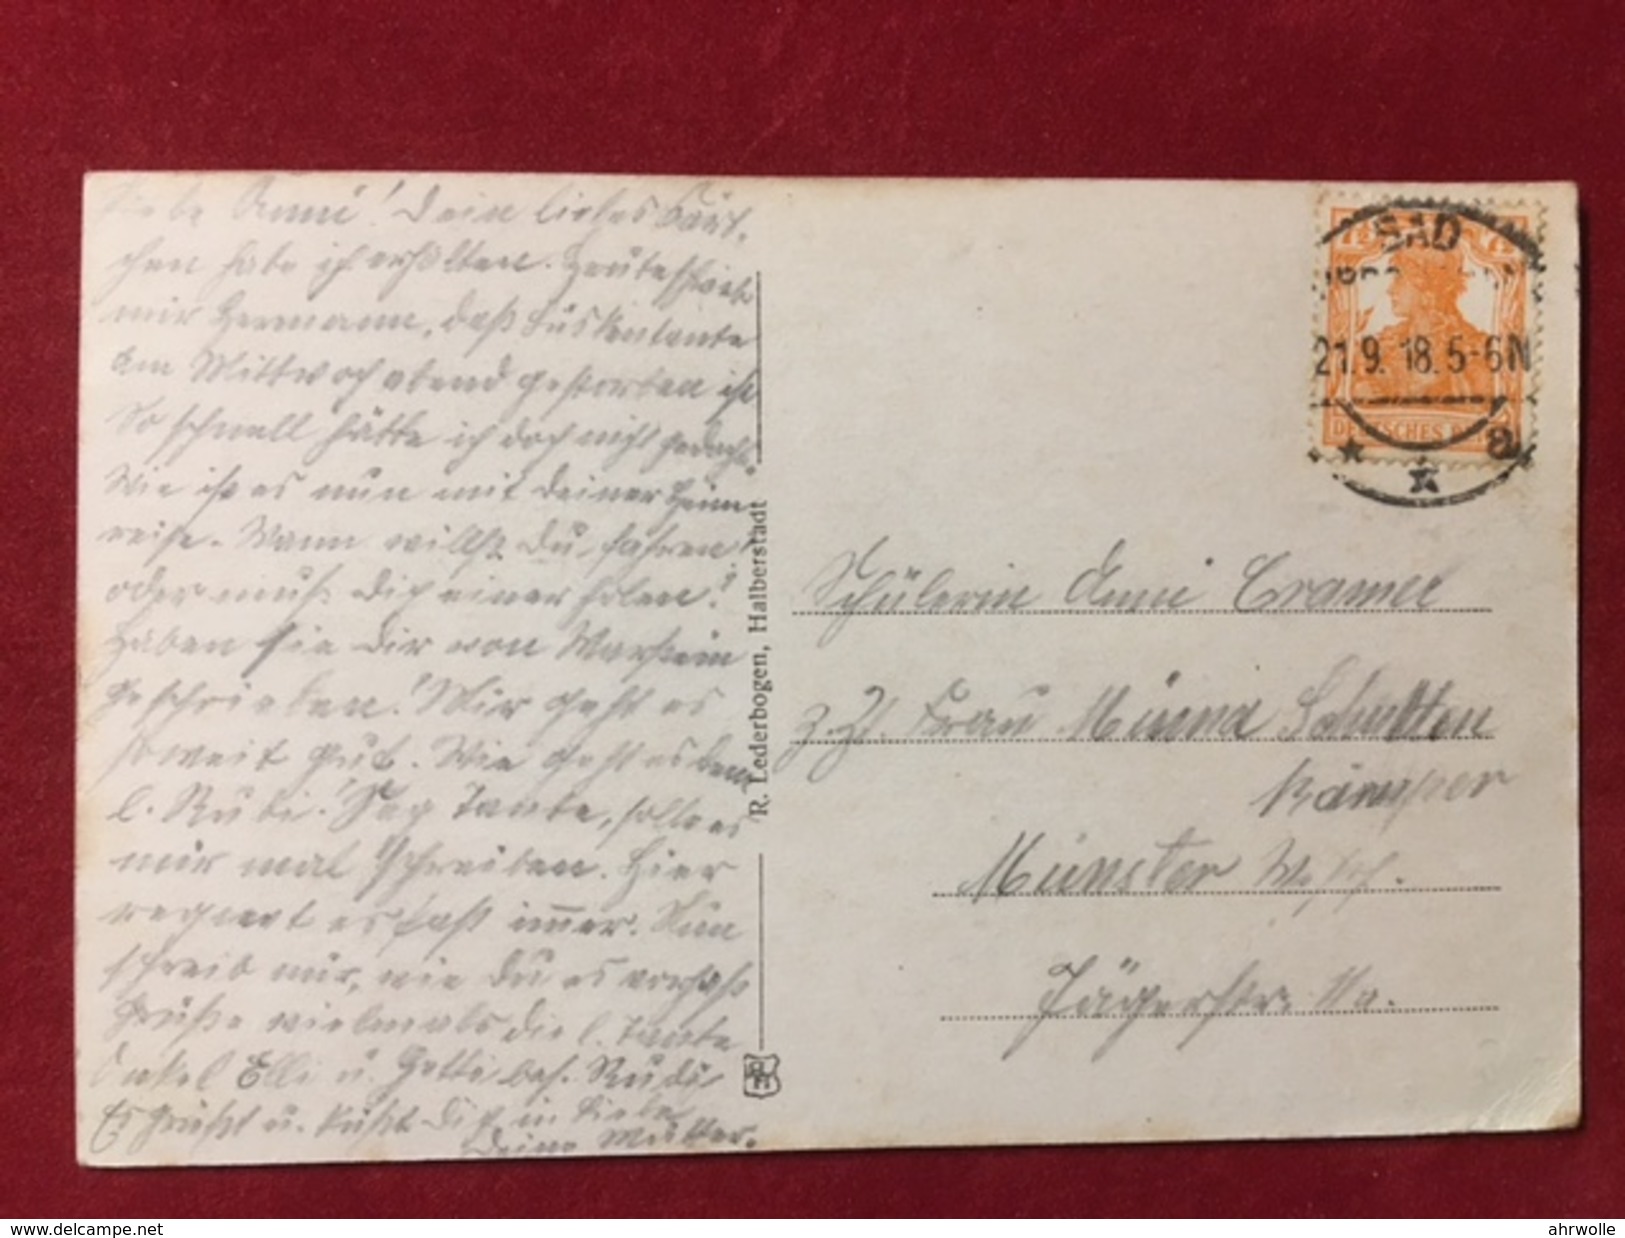 Liebe Änni! Dein liebes Kärt-
chen habe ich erhalten. Heute schrieb
mir Hermann, daß
am Mittwoch abend gestorben ist
So schnell hätte ich doch nicht gedacht.
Wie ist es nun mit Deiner Heim-
reise. Wann willst Du fahren!
oder muß Dich einer holen!
Haben sie Dir von Warstein
geschrieben! Mir geht es
soweit gut. Wie geht es dem
l. Rudi! Sag Tante, sollte es
mir mal schreiben. Hier
regnet es fast immer. Nun
schreib mir, wie Du es
Grüße vielmals die l. Tante
Onkel Elli u. bes. Rudi
Es grüßt u. küßt Dich in Liebe
Deine Mutter.
R. Lederbogen, Halberstadt
7½ 7½
BAD
21.9.18.5-6N
a
DEUTSCHES REICH
Schülerin Änni Cramer
z. Zt. Frau Minna Schulten
Kämper
Münster Westf.
Jägerstr. 11a.
www.delcampe.net
ahrwolle